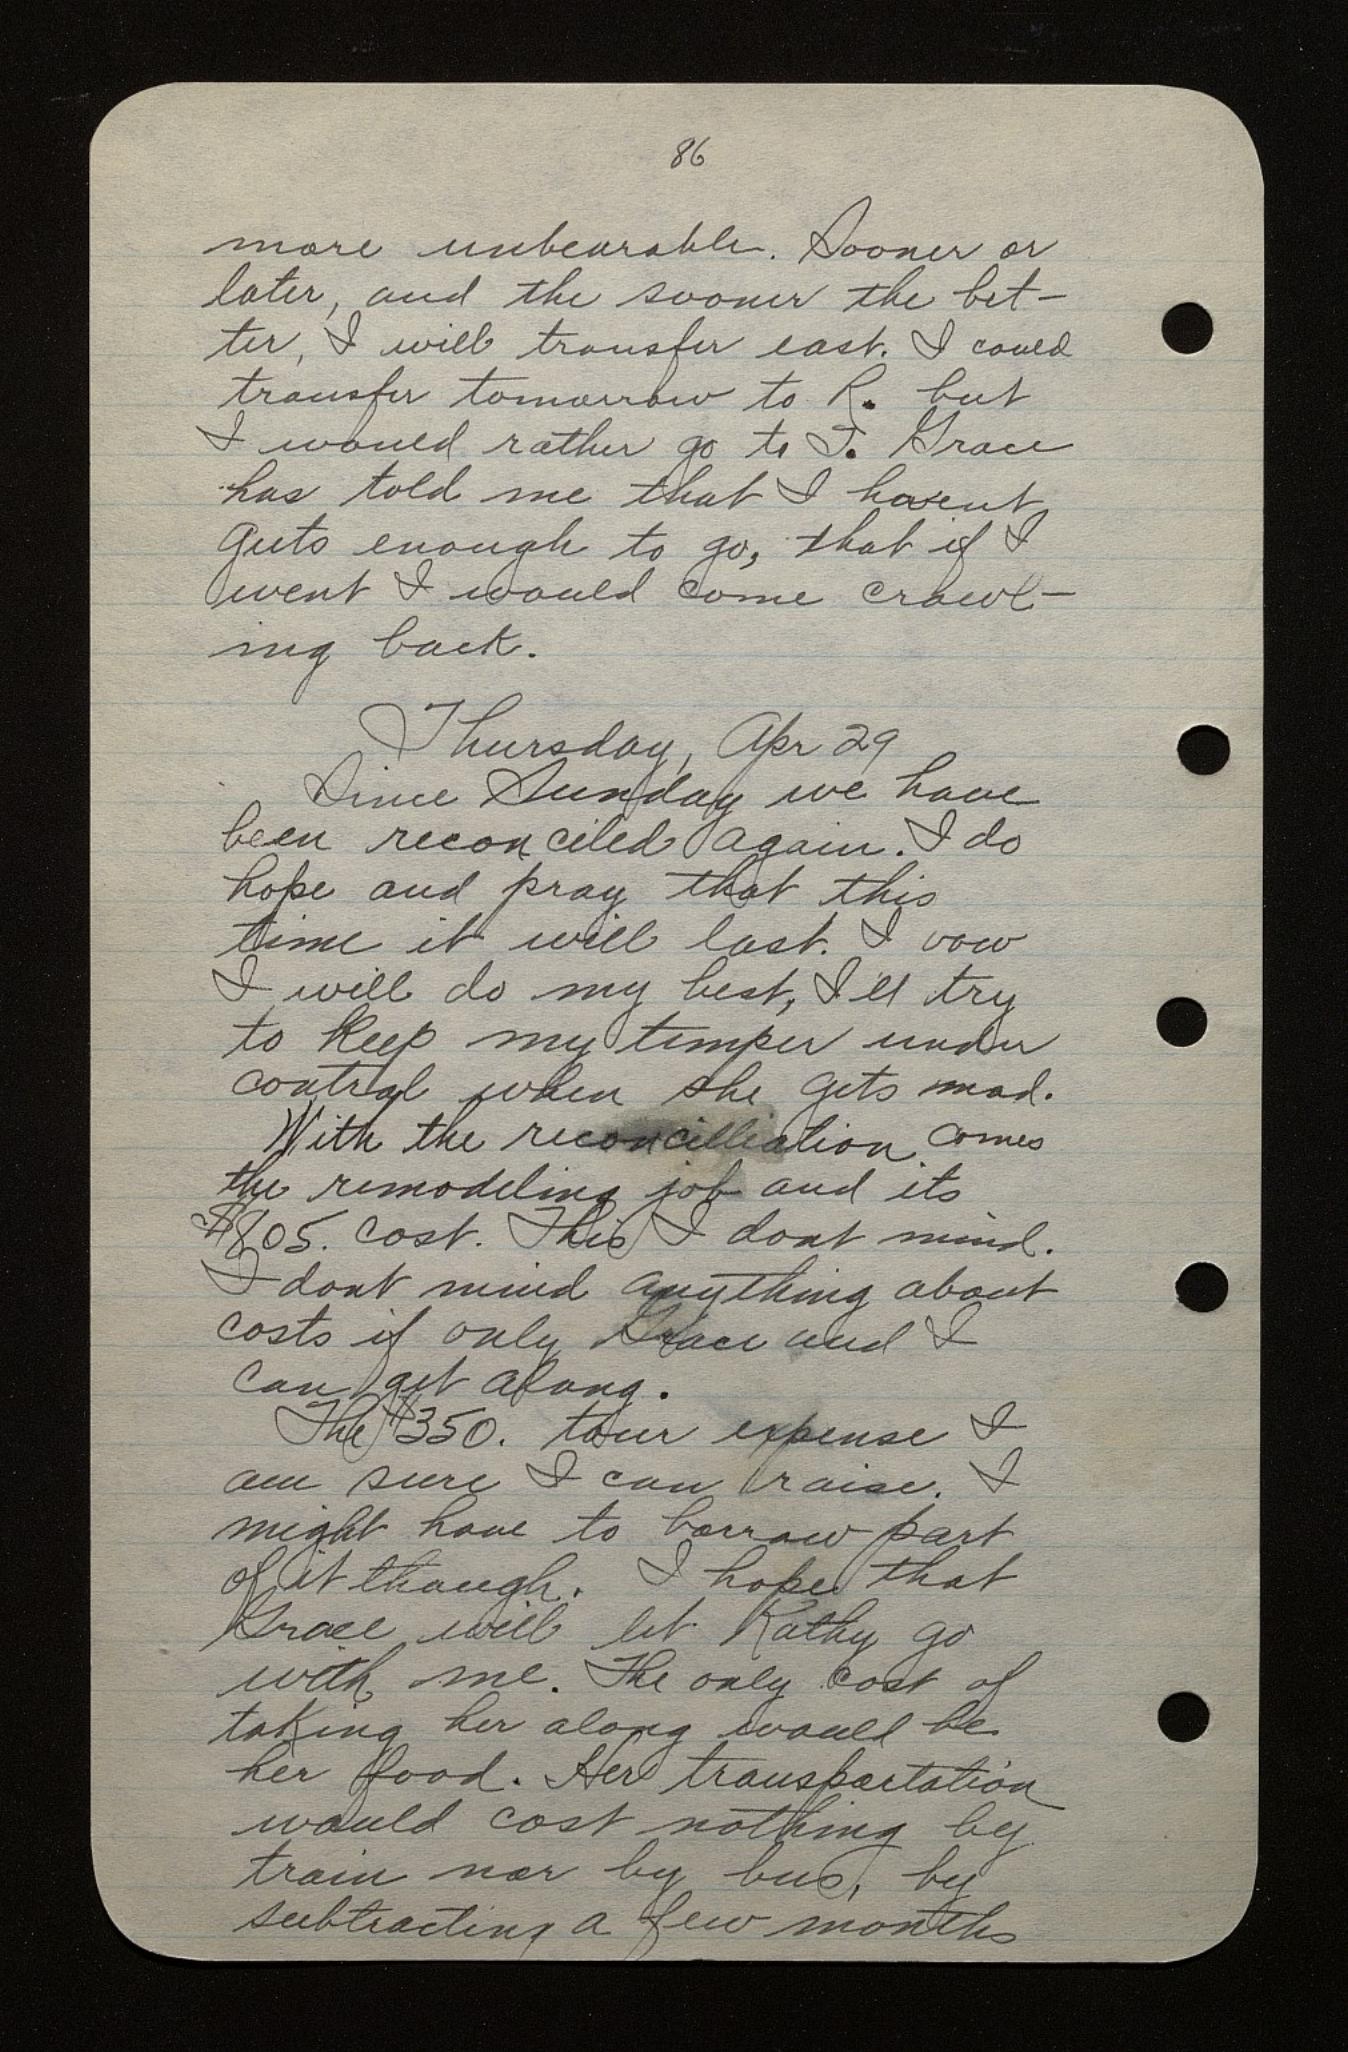 86
more unbearable. Sooner or
later, and the sooner the bet-
ter, I will transfer east. I could
transfer tomorrow to R. but
I would rather go to T. Grace
has told me that I havent
guts enough to go, that if I
went I would come crawl-
ing back.
Thursday, Apr 29
Since Sunday we have
been reconciled again. I do
hope and pray that this
time it will last. I vow
I will do my best, I'll try
to keep my temper under
control when she gets mad.
With the reconcilliation comes
the remodeling job and its
$805. cost. This I dont mind.
I dont mind anything about
costs if only Grace and I
can get along.
The $350. tour expense I
am sure I can raise. I
might have to borrow part
of it though. I hope that
Grace will let Kathy go
with me. The only cost of
taking her along would be
her food. Her transportation
would cost nothing by
train nor by bus, by
subtracting a few months